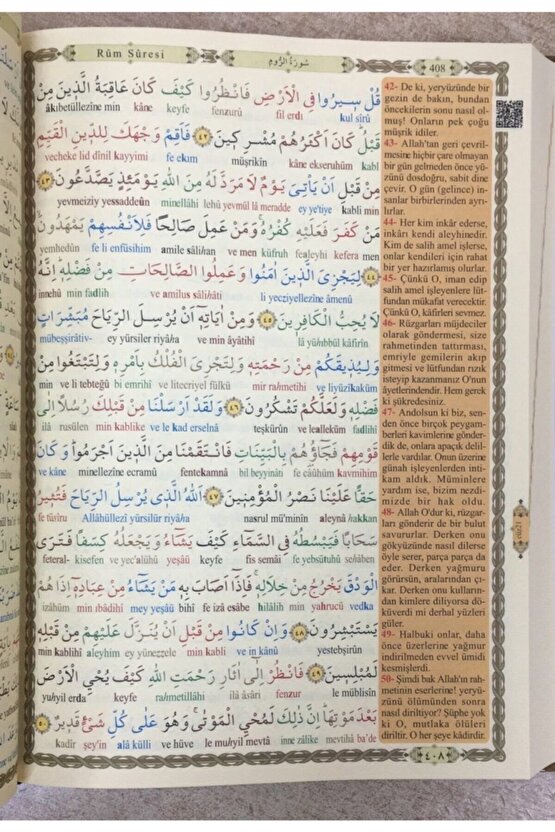 Rûm Sûresi
سُورَةُ الرُّومِ
408
قُلْ سِيرُوا فِى الْاَرْضِ فَانْظُرُوا كَيْفَ كَانَ عَاقِبَةُ الَّذِينَ مِنْ
âkıbetüllezîne min kâne keyfe fenzurû fil erdı kul sîrû
قَبْلُ كَانَ اَكْثَرُهُمْ مُشْرِكِينَ ﴿٤٢﴾ فَاَقِمْ وَجْهَكَ لِلدِّينِ الْقَيِّمِ
vecheke lid dînil kayyimi fe ekım müşrikîn kâne ekseruhüm kabl
مِنْ قَبْلِ اَنْ يَأْتِىَ يَوْمٌ لَا مَرَدَّ لَهُ مِنَ اللّٰهِ يَوْمَئِذٍ يَصَّدَّعُونَ ﴿٤٣﴾
yevmeiziy yessaddeûn minellâhi lehû yevmül lâ meradde ey ye'tiye kabli min
مَنْ كَفَرَ فَعَلَيْهِ كُفْرُهُ وَمَنْ عَمِلَ صَالِحًا فَلِاَنْفُسِهِمْ يَمْهَدُونَ
yemhedûn fe li enfüsihim amile sâlihan ve men küfruh fealeyhi kefera men
﴿٤٤﴾ لِيَجْزِىَ الَّذِينَ اٰمَنُوا وَعَمِلُوا الصَّالِحَاتِ مِنْ فَضْلِهِ اِنَّهُ
innehû min fadlih ve amilus sâlihâti li yecziyellezîne âmenû
لَا يُحِبُّ الْكَافِرِينَ ﴿٤٥﴾ وَمِنْ اٰيَاتِهِ اَنْ يُرْسِلَ الرِّيَاحَ مُبَشِّرَاتٍ
mübeşşirâtiv- ey yürsiler riyâha ve min âyâtihî lâ yühıbbül kâfirîn
وَلِيُذِيقَكُمْ مِنْ رَحْمَتِهِ وَلِتَجْرِىَ الْفُلْكُ بِاَمْرِهِ وَلِتَبْتَغُوا مِنْ
min ve li tebteğû bi emrihî ve litecriyel fülkü mir rahmetihî ve liyüzîkaküm
فَضْلِهِ وَلَعَلَّكُمْ تَشْكُرُونَ ﴿٤٦﴾ وَلَقَدْ اَرْسَلْنَا مِنْ قَبْلِكَ رُسُلًا اِلٰى
ilâ rusülen min kablike ve le kad erselnâ teşkürûn ve lealleküm fadlihî
قَوْمِهِمْ فَجَاؤُهُمْ بِالْبَيِّنَاتِ فَانْتَقَمْنَا مِنَ الَّذِينَ اَجْرَمُوا وَكَانَ
ve kâne minellezîne ecramû fentekamnâ bil beyyinâti fe câûhüm kavmihim
حَقًّا عَلَيْنَا نَصْرُ الْمُؤْمِنِينَ ﴿٤٧﴾ اَللّٰهُ الَّذِى يُرْسِلُ الرِّيَاحَ فَتُثِيرُ
fe tüsîru Allâhüllezî yürsilür riyâha nasrul mü'minîn aleynâ hakkan
سَحَابًا فَيَبْسُطُهُ فِى السَّمَاءِ كَيْفَ يَشَاءُ وَيَجْعَلُهُ كِسَفًا فَتَرَى
feteral- kisefen ve yec'alühû yeşâü keyfe fis semâi fe yebsütuhû sehâben
الْوَدْقَ يَخْرُجُ مِنْ خِلَالِهِ فَاِذَا اَصَابَ بِهِ مَنْ يَشَاءُ مِنْ عِبَادِهِ اِذَا هُمْ
izâhüm min ıbâdihî mey yeşâü bihî fe izâ esâbe hilâlih min yahrucü vedka
يَسْتَبْشِرُونَ ﴿٤٨﴾ وَاِنْ كَانُوا مِنْ قَبْلِ اَنْ يُنَزَّلَ عَلَيْهِمْ مِنْ قَبْلِهِ
min kablihî aleyhim ey yünezzele min kabli ve in kânû yestebşirûn
لَمُبْلِسِينَ ﴿٤٩﴾ فَانْظُرْ اِلٰى اٰثَارِ رَحْمَتِ اللّٰهِ كَيْفَ يُحْيِى الْاَرْضَ
yuhyil erda keyfe rahmetillâhi ilâ âsâri fenzur le müblisîn
بَعْدَ مَوْتِهَا اِنَّ ذٰلِكَ لَمُحْيِى الْمَوْتٰى وَهُوَ عَلٰى كُلِّ شَىْءٍ قَدِيرٌ ﴿٥٠﴾
kadir şey'in alâ külli ve hüve le muhyil mevtâ inne zâlike mevtihâ ba'de
٤٠٨
42- De ki, yeryüzünde bir
gezin de bakın, bundan
öncekilerin sonu nasıl ol-
muş! Onların pek çoğu
müşrik idiler.
43- Allah'tan geri çevril-
mesine hiçbir çare olmayan
bir gün gelmeden önce yü-
zünü dosdoğru, sabit dine
çevir. O gün (gelince) in-
sanlar birbirlerinden ayrı-
lırlar.
44- Her kim inkâr ederse,
inkârı kendi aleyhinedir.
Kim de salih amel işlerse,
onlar kendileri için rahat
bir yer hazırlamış olurlar.
45- Çünkü O, iman edip
salih amel işleyenlere lüt-
fundan mükafat verecektir.
Çünkü O, kâfirleri sevmez.
46- Rüzgarları müjdeciler
olarak göndermesi, size
rahmetinden tattırması,
emriyle gemilerin akıp
gitmesi ve lütfundan rızık
isteyip kazanmanız O'nun
âyetlerindendir. Hem gerek
ki şükredesiniz.
47- Andolsun ki biz, sen-
den önce birçok peygam-
berleri kavimlerine gönder-
dik de, onlara apaçık delil-
lerle vardılar. Onun üzerine
günah işleyenlerden inti-
kam aldık. Müminlere
yardım ise, bizim nezdi-
mizde bir hak oldu.
48- Allah O'dur ki, rüzgar-
ları gönderir de bir bulut
savururlar. Derken onu
gökyüzünde nasıl dilerse
öyle serer, parça parça da
eder. Derken yağmuru
görürsün, aralarından çı-
kar. Derken onu kulların-
dan kimlere diliyorsa dö-
küverdi mi derhal yüzleri
güler.
49- Halbuki onlar, daha
önce üzerlerine yağmur
indirilmeden evvel ümidi
kesmişlerdi.
50- Şimdi bak Allah'ın rah-
metinin eserlerine! yeryü-
zünü ölümünden sonra
nasıl diriltiyor? Şüphe yok
ki O, mutlaka ölüleri
diriltir, O her şeye kâdirdir.